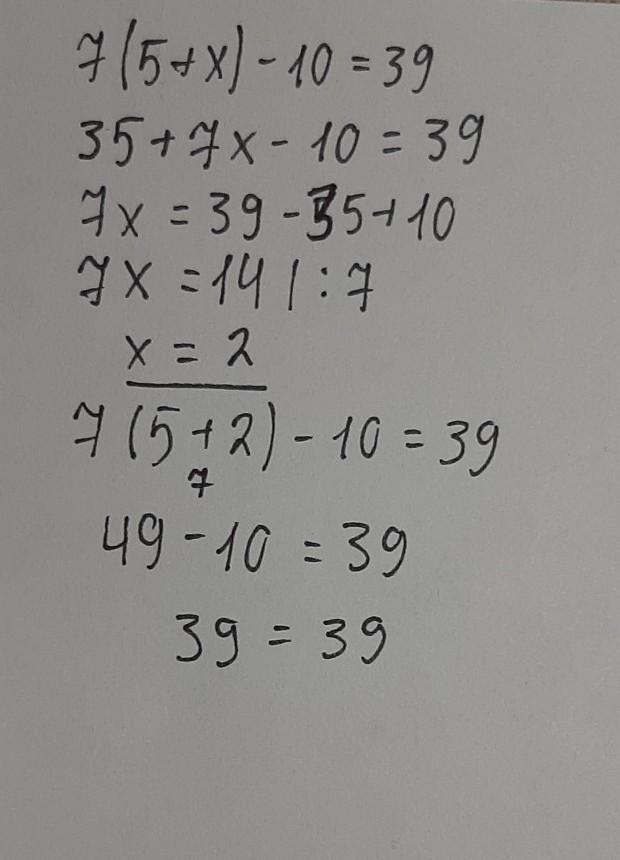 7(5+x)-10=39
35+7x-10=39
7x=39-35+10
7x=14 |:7
x=2
7(5+2)-10=39
7
49-10=39
39=39